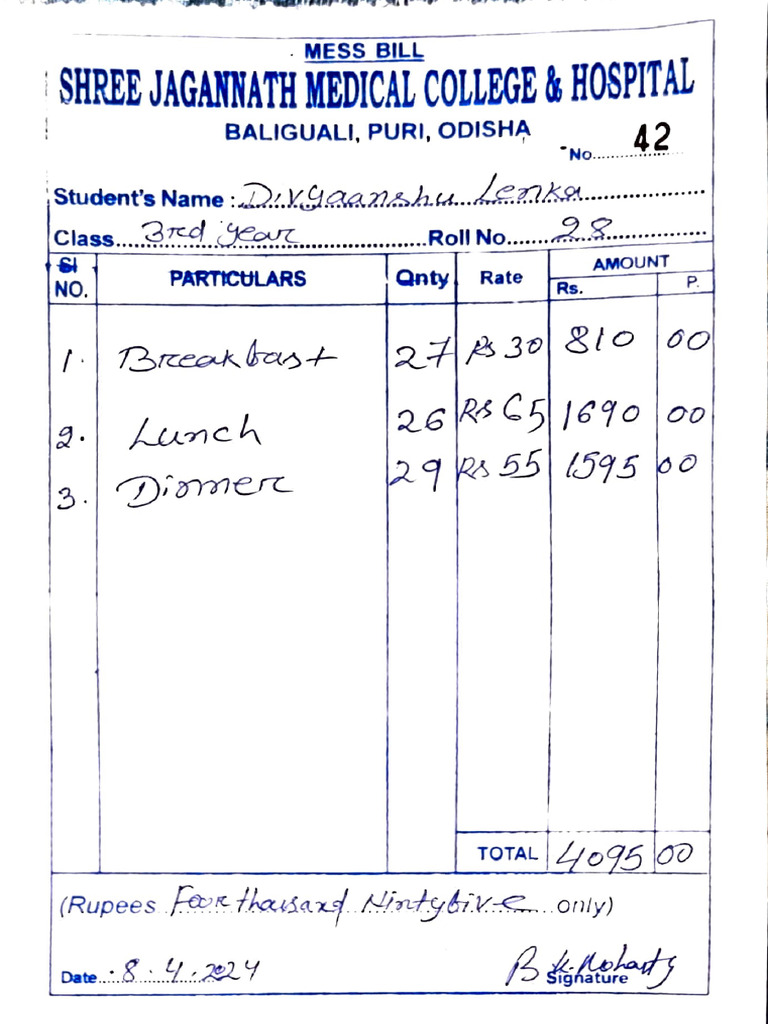 MESS BILL
SHREE JAGANNATH MEDICAL COLLEGE & HOSPITAL
BALIGUALI, PURI, ODISHA
No. 42
Student's Name : Divyaanshu Lenka
Class 3rd year Roll No. 28
Sl NO. PARTICULARS Qnty Rate AMOUNT
Rs. P.
1. Breakbast 27 Rs 30 810 00
2. Lunch 26 Rs 65 1690 00
3. Dinner 29 Rs 55 1595 00
TOTAL 4095 00
(Rupees Four thousand Nintybive only)
Date 8.4.2024 B.K. Mohanty
Signature